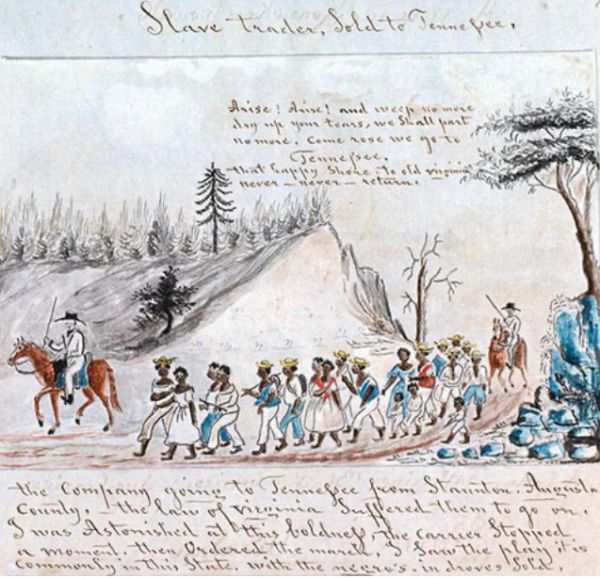 Slave trader, Sold to Tennessee,
Arise! Arise! and weep no more
dry up your tears, we Shall part
no more. Come rose we go to
Tennessee.
that happy Shore. to old virginia
never – never – return.
the Company going to Tennessee from Staunton, Augusta
County, – the law of virginia Suffered them to go on.
I was Astonished at this boldness, the carrier Stopped
a moment, then Ordered the march, I Saw the play it is
Commonly in this State, with the negro's in droves Sold.